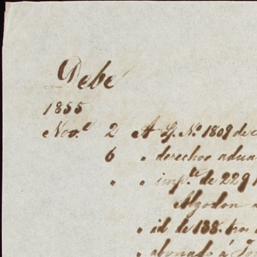 Debe
1855
Nov.e 2 A G. Nº 1809 de
6 " derechos adua
" " imp.te de 229
Algodon
" id de 188.
" abonado á